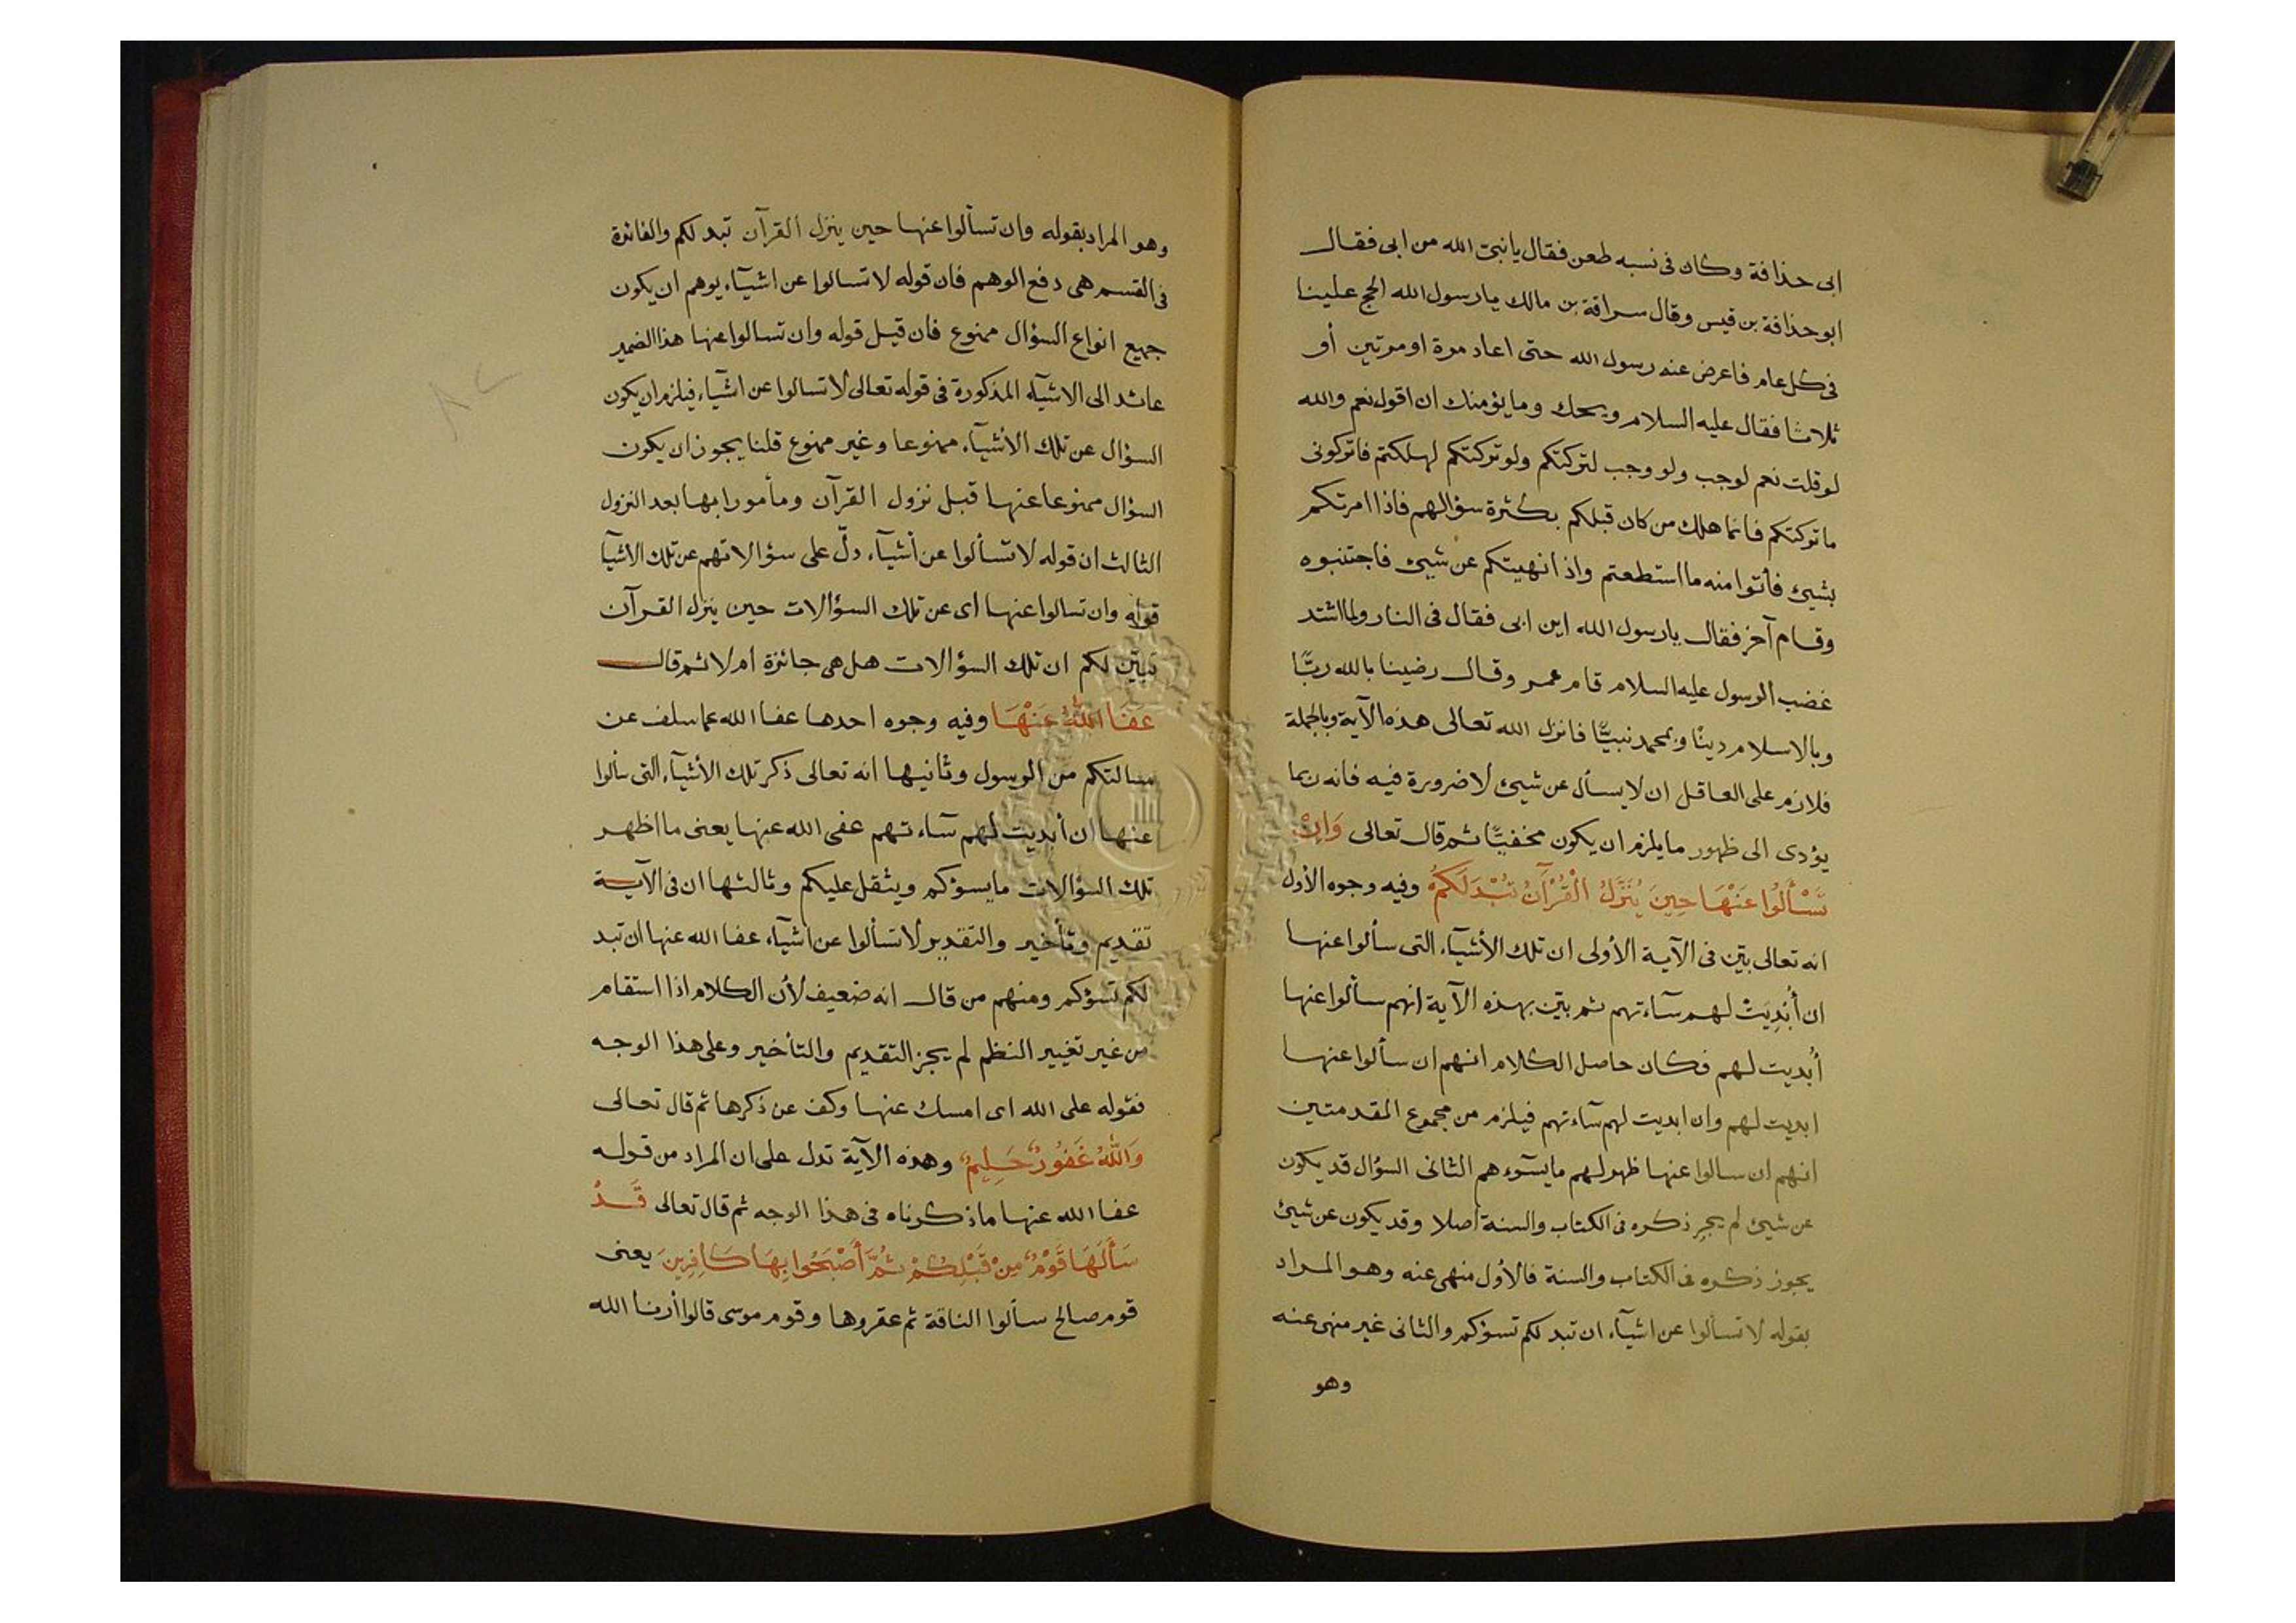 ابى حذافة وكان فى نسبه طعن فقال يا نبىّ الله من ابى فقال
ابو حذافة بن قيس وقال سراقة بن مالك يا رسول الله الحج علينا
فى كل عام فاعرض عنه رسول الله حتى اعاد مرة او مرتين أو
ثلاثا فقال عليه السلام ويحك وما يؤمنك ان اقول نعم والله
لو قلت نعم لوجب ولو وجب لتركتكم ولو تركتكم لهلكتم فاتركونى
ما تركتكم فانما هلك من كان قبلكم بكثرة سؤالهم فاذا امرتكم
بشيئ فأتوا منه ما استطعتم واذا نهيتكم عن شيئ فاجتنبوه
وقام آخر فقال يا رسول الله اين ابى فقال فى النار ولما اشتد
غضب الرسول عليه السلام قام عمر وقال رضينا بالله ربًّا
وبالاسلام دينًا وبمحمد نبيًّا فانزل الله تعالى هذه الآية وبالجملة
فلازم على العاقل ان لا يسأل عن شيئ لا ضرورة فيه فانه ربما
يؤدى الى ظهور ما يلزم ان يكون مخفيًّا ثم قال تعالى وَاِنْ
تَسْأَلُوا عَنْهَا حِينَ يُنَزَّلُ الْقُرْآنُ تُبْدَ لَكُمْ وفيه وجوه الأول
انه تعالى بيّن فى الآية الأولى ان تلك الأشيآء التى سألوا عنها
ان أُبْدِيَتْ لهم سآءتهم ثم بيّن بهذه الآية انهم سألوا عنها
أُبديت لهم فكان حاصل الكلام انهم ان سألوا عنها
ابديت لهم وان ابديت لهم سآءتهم فيلزم من مجموع المقدمتين
انهم ان سالوا عنها ظهر لهم ما يسوءهم الثانى السؤال قد يكون
عن شيئ لم يجر ذكره فى الكتاب والسنة اصلا وقد يكون عن شيئ
يجوز ذكره فى الكتاب والسنة فالأول منهى عنه وهو المراد
بقوله لا تسألوا عن اشيآء ان تبد لكم تسؤكم والثانى غير منهى عنه
وهو
وهو المراد بقوله وان تسألوا عنها حين ينزل القرآن تبد لكم والفائدة
فى القسم هى دفع الوهم فان قوله لا تسالوا عن اشيآء يوهم ان يكون
جميع انواع السؤال ممنوع فان قيل قوله وان تسالوا عنها هذا الضمير
عائد الى الاشيآء المذكورة فى قوله تعالى لا تسالوا عن اشيآء فيلزم ان يكون
السؤال عن تلك الأشيآء ممنوعا وغير ممنوع قلنا يجوز ان يكون
السؤال ممنوعا عنها قبل نزول القرآن ومأمورا بها بعد النزول
الثالث ان قوله لا تسألوا عن أشيآء دلّ على سؤالاتهم عن تلك الاشيآ
قوله وان تسالوا عنها اى عن تلك السؤالات حين ينزل القرآن
تبيّن لكم ان تلك السؤالات هل هى جائزة ام لا ثم قال
عَفَا اللهُ عَنْهَا وفيه وجوه احدها عفا الله عما سلف عن
مسالتكم من الرسول وثانيها انه تعالى ذكر تلك الأشيآء التى سألوا
عنها ان أبديت لهم سآءتهم عفى الله عنها يعنى ما اظهر
تلك السؤالات ما يسوؤكم ويثقل عليكم وثالثها ان فى الآية
تقديم وتأخير والتقدير لا تسألوا عن اشيآء عفا الله عنها ان تبد
لكم تسؤكم ومنهم من قال انه ضعيف لأن الكلام اذا استقام
من غير تغيير النظم لم يجز التقديم والتأخير وعلى هذا الوجه
فقوله على الله اى امسك عنها وكف عن ذكرها ثم قال تعالى
وَاللهُ غَفُورٌ حَلِيمٌ وهذه الآية تدل على ان المراد من قوله
عفا الله عنها ما ذكرناه فى هذا الوجه ثم قال تعالى قَدْ
سَأَلَهَا قَوْمٌ مِنْ قَبْلِكُمْ ثُمَّ أَصْبَحُوا بِهَا كَافِرِينَ يعنى
قوم صالح سألوا الناقة ثم عقروها وقوم موسى قالوا أرنا الله